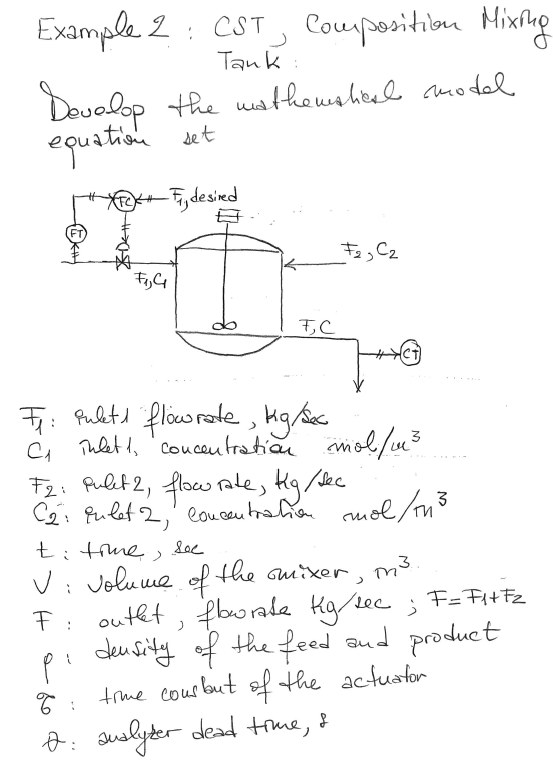 Example 2 : CST, Composition Mixing
Tank :
Develop the mathematical model
equation set
F₁, desired
FC
FT
F₁, C₁
F₂, C₂
F, C
CT
F₁ : inlet 1 flowrate, Kg/sec
C₁ inlet 1, concentration mol/m³
F₂ : inlet 2, flowrate, Kg/sec
C₂ : inlet 2, concentration mol/m³
t : time, sec
V : volume of the mixer, m³
F : outlet, flowrate Kg/sec ; F = F₁ + F₂
ρ : density of the feed and product
τ : time constant of the actuator
θ : analyzer dead time, s